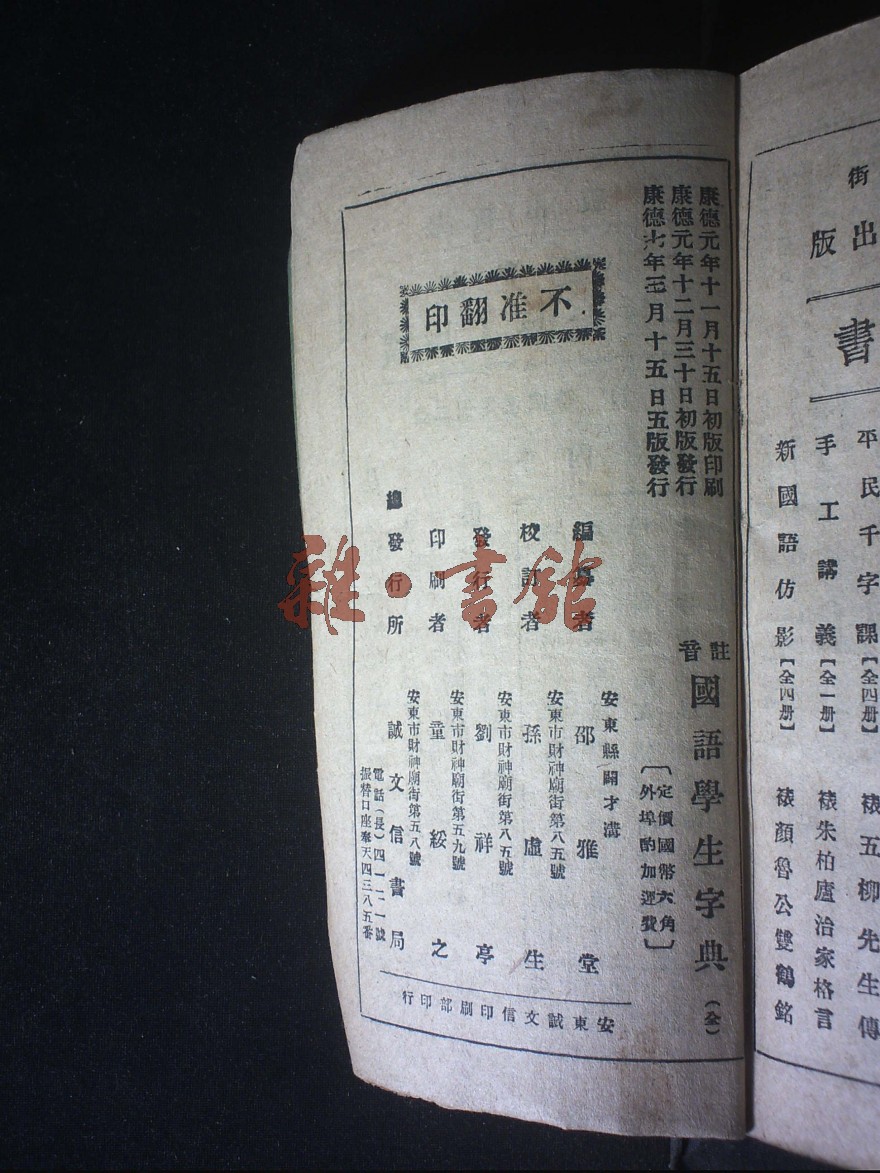 街
出版
書
平民千字課【全四册】
手工講義【全一册】
新國語仿影【全四册】
裱五柳先生傳
裱朱柏廬治家格言
裱顏魯公雙鶴銘
康德元年十一月十五日初版印刷
康德元年十二月三十日初版發行
康德七年三月十五日五版發行
註音國語學生字典（全）
〔定價國幣六角
外埠酌加運費〕
不准翻印
編者
安東縣闢才溝
邵雅堂
校訂者
安東市財神廟街第八五號
孫虛生
發行者
安東市財神廟街第八五號
劉祥亭
印刷者
安東市財神廟街第五九號
童綏之
總發行所
安東市財神廟街第五八號
誠文信書局
電話（長）四一二一號
振替口座奉天四三八五番
安東誠文信印刷部印行
雜·書館